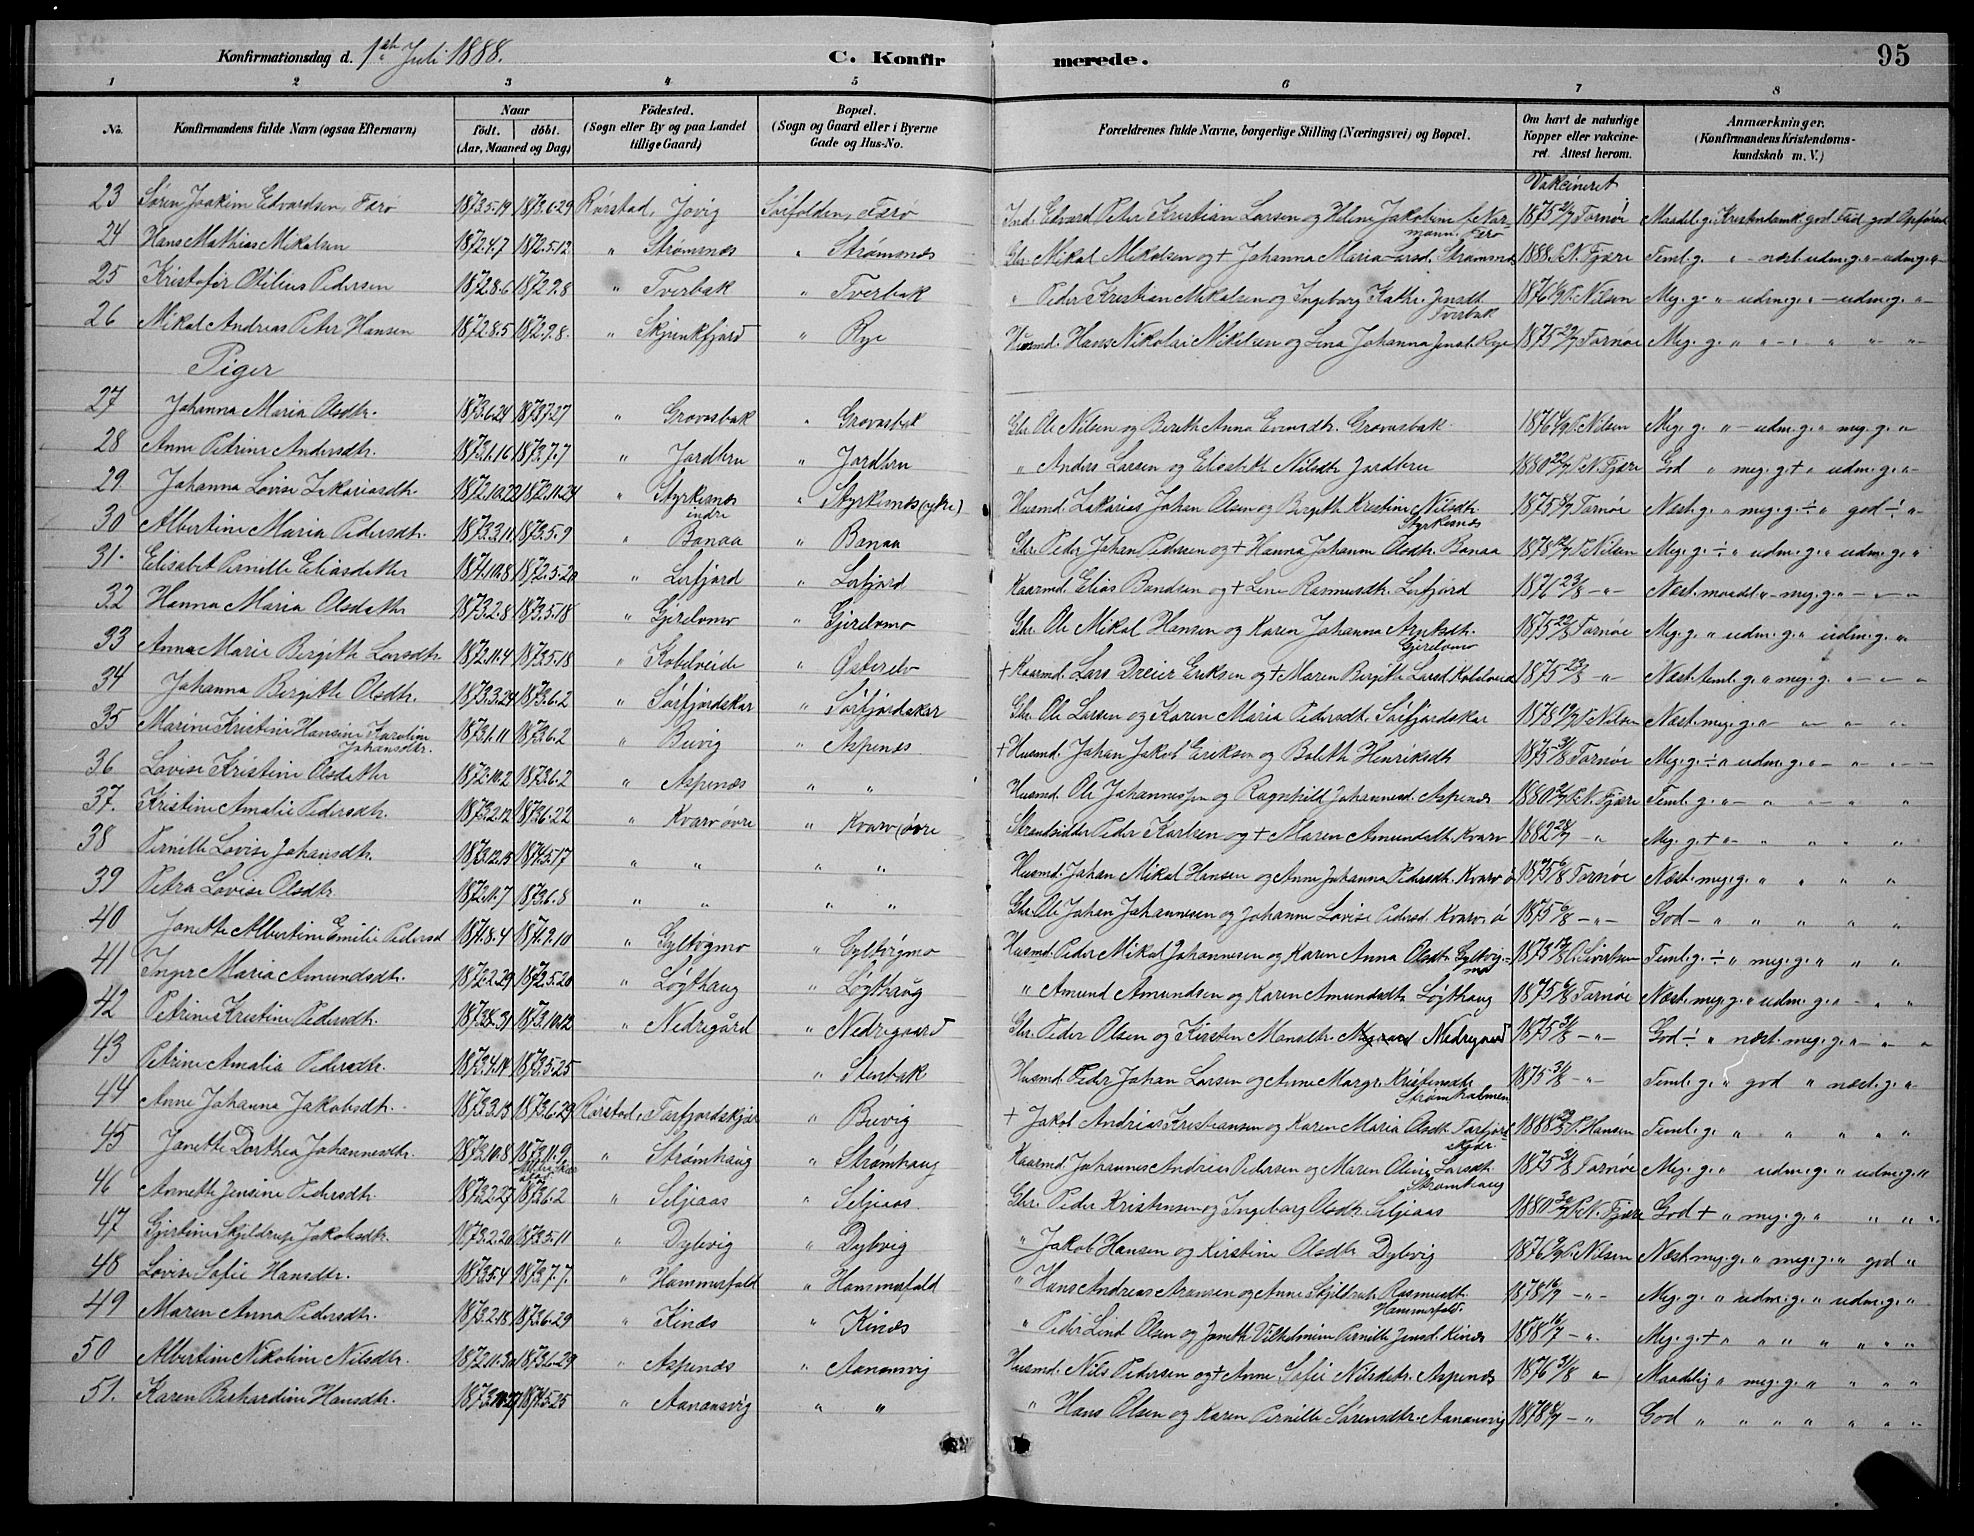 Konfirmationsdag d. 1ste Juli 1888.
C. Konfirmerede.
95
1 2 3 4 5 6 7 8
No. Konfirmandens fulde Navn (ogsaa Efternavn) Naar födt. döbt. (Aar, Maaned og Dag) Födested. (Sogn eller By og paa Landet tillige Gaard) Bopæl. (Sogn og Gaard eller i Byerne Gade og Hus-No. Forældrenes fulde Navne, borgerlige Stilling (Næringsvei) og Bopæl. Om havt de naturlige Kopper eller vakcineret. Attest herom. Anmærkninger. (Konfirmandens Kristendomskundskab m. V.)
Vakcineret
23 Søren Joakim Edvardsen, Færø 1873.5.19 1873.6.29 Rørstad, Jovig Sørfolden, Færø Ind. Edvard Peter Kristian Larsen og Helene Jakobine Færø 1875 Tornøe Maadel. g. Kristendomk. god Flid god Opførsel
24 Hans Mathias Mikalsen 1872.4.7 1872.5.12 " Strømsnæs " Strømsnæs Gbr. Mikal Mikalsen og + Johanna Maria Larsd. Strømsnæs 1888 P.N. Fjære Teml. g. " - næst udm. g. " - udm. g. "
25 Kristofer Otilius Pedersen 1872.8.6 1872.9.8 " Tverbak " Tverbak " Peder Kristian Mikalsen og Ingeborg Kathr. Jensdt. Tverbak 1876 P. Nilsen Meg. g. " - udm. g. " - udm. g. "
26 Mikal Andreas Peter Hansen 1872.8.5 1872.9.8. " Skjunkfjord " Rye Husmd. Hans Nikolai Mikelsen og Lina Johanna Jensd. Rye 1875 Tornøe Meg. g. " " - " " " "
Piger
27 Johanna Maria Olsdtr. 1873.6.24 1873.7.27 " Grovasbak " Grovasbak Gbr. Ole Nilsen og Berith Anna Evensdtr. Grovasbak 1876 P. Nilsen Meg. g. " - udm. g. " meg. g. "
28 Anne Petrine Andersdtr. 1873.1.16 1873.7.7 " Jordbru " Jordbru " Anders Larsen og Elisabeth Nilsdtr Jordbru 1880 P.N. Fjære God " meg. g. + " udm. g. "
29 Johanna Lovise Zakariasdtr. 1872.10.22 1872.11.24 " Styrkesnæs indre " Styrkesnæs (ydre) Husmd. Zakarias Johan Olsen og Birgith Kristine Nilsdtr. Styrkesnæs 1875 Tornøe Næst. g. " meg. g. ÷ " god ÷ "
30 Albertine Maria Pedersdtr. 1873.3.11 1873.5.9 " Bonaa " Bonaa Gbr. Peder Johan Pedersen og + Hanna Johanna Olsdtr. Bonaa 1878 P. Nilsen Meg. g. ÷ " udm. g. " udm. g. "
31. Elisabet Pernille Eliasdatter 1871.10.8 1872.5.20 " Lerfjord " Lerfjord Kaarmd. Elias Bendsen og + Lene Rasmusdtr. Lerfjord 1876 23/8 - " - Næst. maadel. " - meg. g. " - " "
32 Hanna Maria Olsdatter 1873.2.8 1873.5.18 " Gjerelvmo " Gjerelvmo Gbr. Ole Mikal Hansen og Karen Johanna Gjerelvmo 1875 Tornøe Meg. g. " udm. g. " udm. g. "
33 Anna Marie Birgith Larsdtr 1872.11.4 1873.5.18 " Kobelveide " Østerelv + Kaarmd. Lars Dreier Eriksen og + Maren Birgithe Larsd Kobelveid 1875 23/8 - " Næst. teml. g. " meg. g. " " "
34 Johanna Birgithe Olsdtr. 1873.3.24 1873.6.2 " Sørfjordskar " Sørfjordskar Gbr. Ole Larsen og Karen Maria Pedersdt. Sørfjordskar 1878 P. Nilsen Næst. meg. g. " " " "
35 Marine Kristine Hansine Karoline Johansdtr. 1873.1.11 1873.6.2 " Buvig " Aspenæs + Husmd. Johan Jakob Eriksen og Bolith Henriksdt 1875 Tornøe Meg. g. ÷ " udm. g. " - " - -
36 Lovise Kristine Olsdatter 1872.10.2 1873.6.2 " Aspenæs " " Husmd. Ole Johannessen og Ragnhild Johannesd. Aspenæs 1880 P.N. Fjære Teml. g. " - " " - " "
37. Kristine Amalie Pedersdtr. 1873.2.12 1873.6.22 " Kvarv øvre " Kvarv øvre Strandsidder Peder Karlsen og + Maren Amundsdt. Kvarv 1882 - " Meg. g. + " - " " " "
38 Pernille Lovise Johansdtr. 1873.12.15 1874.5.17 " " " " Husmd. Johan Mikal Hansen og Anne Johanna Pedersdt. Kvarv ø 1875 Tornøe Næst. meg. g. " " " "
39 Petra Lovise Olsdtr. 1872.11.7 1873.6.8 " " " " Gbr. Ole Johan Johannesen og Johanne Lovise Pedersd. Kvarv ø 1875 - " - God - " " " " "
40 Janette Albertine Emilie Pedersd 1871.8.4 1871.9.10 " Gyltvigmo " Gyltvigmo Husmd. Peder Mikal Johannesen og Karen Anna Olsdtr. Gyltvigmo 1873 Teml. g. ÷ " meg. g. " " "
41 Inger Maria Amundsdtr. 1872.2.29 1872.5.20 " Løgthaug " Løgthaug " Amund Amundsen og Karen Amundsdtr Løgthaug 1875 Tornøe Næst. meg. g. " udm. g. " - " "
42 Petrine Kristine Pedersdtr. 1873.8.31 1873.10.12 " Nedregård " Nedregaard Gbr. Peder Olsen og Kirsten Monsdtr. Nedregaard 1875 31/8 - " God ÷ " næst. meg. g. " " "
43 Petrine Amalia Pedersdtr. 1873.4.14 1873.5.25 " Stenbak Husmd. Peder Johan Larsen og Anne Margr. Kristensdtr Strømholmen 1875 31/8 - " Teml. g. " god " næst. g. "
44 Anne Johanna Jakobsdtr. 1873.3.13 1873.6.29 Rørstad, Torfjordskjær " Buvig + Jakob Andreas Kristiansen og Karen Maria Olsdt. Torfjordskjær 1888 P. Hansen Teml. g. " " " " "
45 Janette Dorthea Johannesdtr. 1873.10.8 1873.11.9 " Strømhaug " Strømhaug Kaarmd. Johannes Andreas Pedersen og Maren Oline Larsdt. Strømhaug 1875 31/8 Tornøe Meg. g. " udm. g. " udm. g. "
46 Annette Jensine Pedersdtr. 1873.2.27 1873.6.2 " Seljeaas " Seljeaas Gbr. Peder Kristensen og Ingeborg Olsdtr. Seljeaas 1880 P.N. Fjære God + " meg. g. " " " "
47 Gjertine Skjeldrup Jakobsdtr. 1873.2.20 1873.5.11 " Dybvig " Dybvig " Jakob Hansen og Kirstine Olsdtr Dybvig 1876 P. Nilsen Næst meg. g. " meg. g. " god "
48 Lovise Sofie Hansdtr. 1873.5.4 1873.7.7. " Hammerfald " Hammerfald " Hans Andreas Aronsen og Anne Skjeldrup Rasmusdt. Hammerfald. 1878 - " Meg. g. " udm. g. " udm. g. "
49 Maren Anna Pedersdtr. 1873.2.18 1873.6.29 " Kinæs " Kinæs " Peder Lind Olsen og Janeth Vilhelmine Pernille Jensd. Kinæs 1878 - " Meg. g. + " " " " " "
50 Albertine Nikoline Nilsdtr. 1872.11.30 1873.6.29 " Aspenæs " Aanansvig Husmd. Nils Pedersen og + Anne Sofie Nilsdtr. Aspenæs 1876 31/8 " Maadelig " meg. g. " " " "
51. Karen Berhardine Hansdtr. 1873.10.27 1874.5.25 " Aanansvig " " " Hans Olsen og Karen Pernille Sørensdtr. Aanansvig 1878 - " God " " " " " "